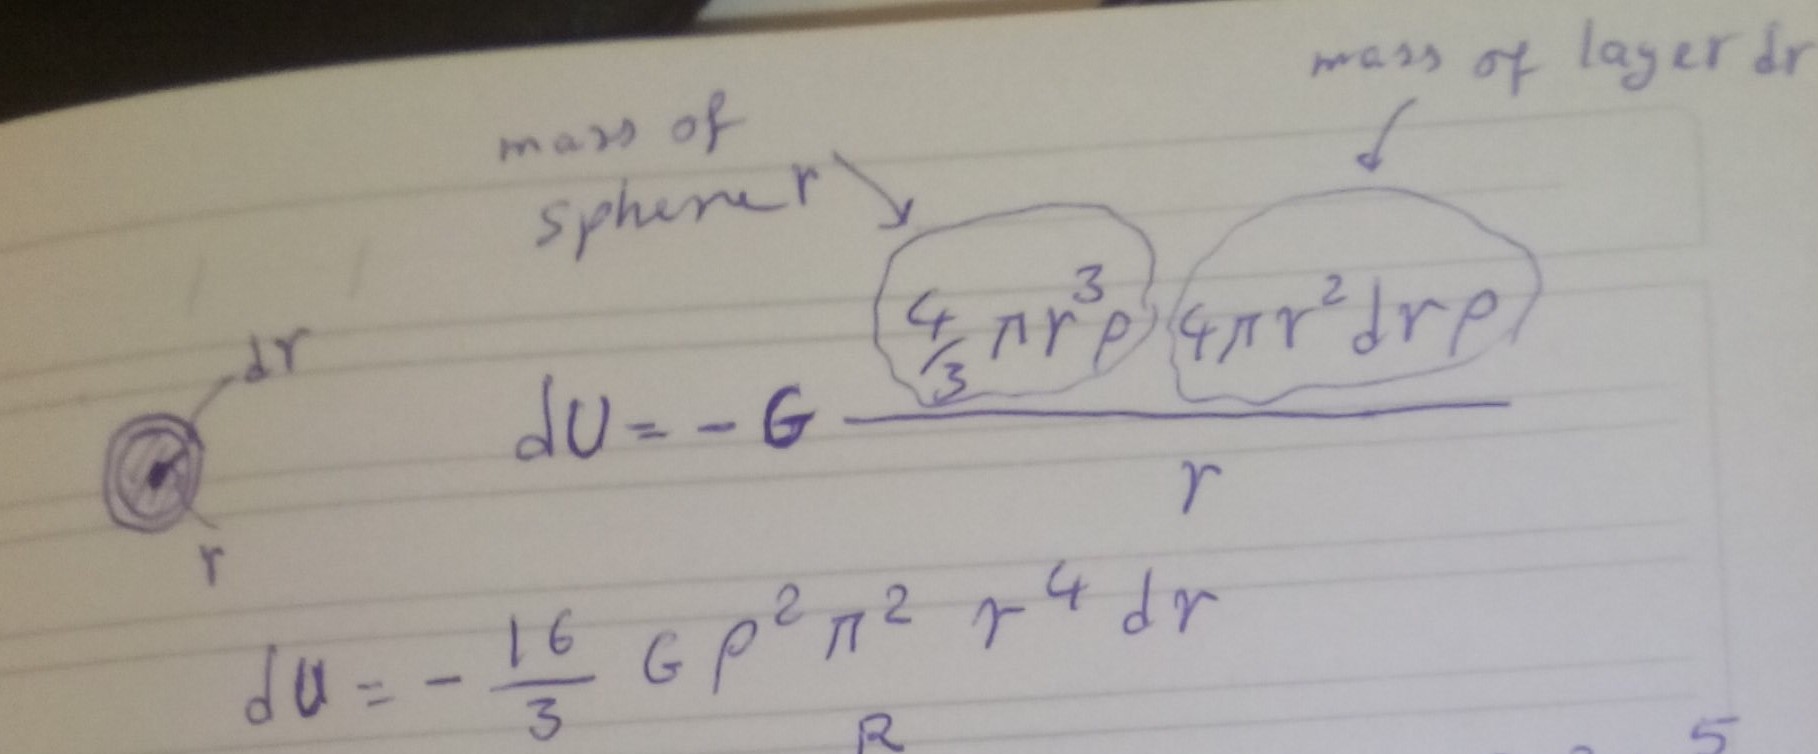 mass of layer dr
mass of
sphere r
4/3 πr³ρ 4πr² dr ρ
dr
dU = - G
r
r
dU = - 16/3 G ρ² π² r⁴ dr
R
5